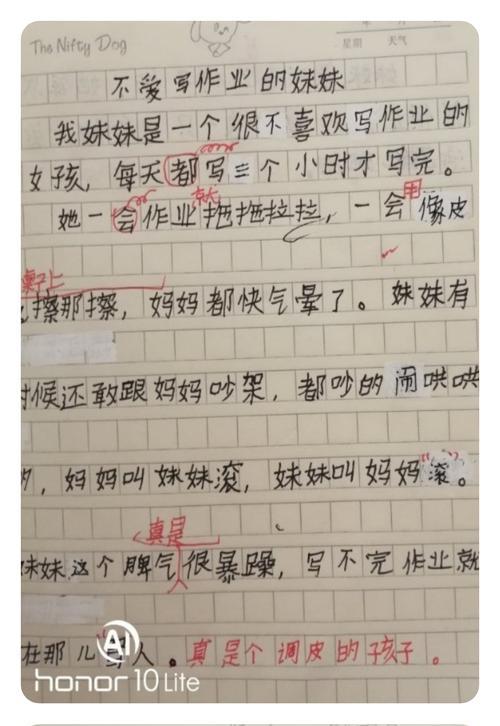 The Nifty Dog
星期 天气
不爱写作业的妹妹
我妹妹是一个很不喜欢写作业的
女孩，每天都写三个小时才写完。
就 用
她一会作业拖拖拉拉，一会像皮
桌子上
擦那擦，妈妈都快气晕了。妹妹有
时候还敢跟妈妈吵架，都吵的闹哄哄
的，妈妈叫妹妹滚，妹妹叫妈妈“滚”。
真是
妹妹这个脾气很暴躁，写不完作业就
在那儿 人。真是个调皮的孩子。
AI
honor 10 Lite